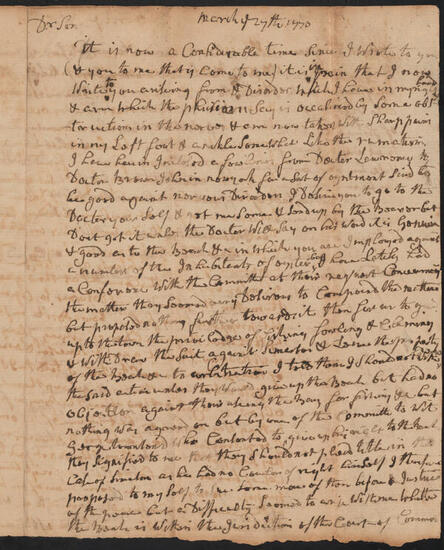 March ye 27th 1770
Dr Son
It is now a Considerable time Since I Wrote to you
(& you to me that is come to me) it is pain that I now
Write to you ariseing from ye Disorder which I have in my right hand
& arm which the phisians Say is occasioned by Some obs
tructions in the nerves & am now taken with Sharp pains
in my Left foot & ankle Somewhat Like the rumatism
I have been Informed from Docter Lawrence &
Docter Brown in new york for a Sort of oyntment Said to
be good against nervous Disorders I Desire you to go to the
Docter your Self & get me Some & Send up by the Bearer but
Dont get it unless the Docter Will Say on his word it is Genuin
& good as to the Beach & in which you are Imployed against
a number of the Inhabitants of oysterbay I have Lately had
a Conferance With the Committe at their request Concerning
the matter they Seemed very Desirous to Compromise the matter
but proposed nothing further toward it then for us to give
up to the town the priviledges of fishing fowling & Claming
& With Drew the Suit against Simerson & Leave the property
of the Beach to arbitration I told them I Should not
the said unless they gave up the Beach but had no
objection against their useing the Bay for fishing & but
nothing was agreed on but by one of the Committe to Wit
George he Contented to give up his right to the Beach
they Signified to me that they Should not plead title in the
Case of as he had no Coulour of right himself I therefore
proposed to my Self to Sue Some more of them before a Justice
of the peace but a Difficulty Seemed to arise With me Whether
the Beach is Within the Jurisdiction of the Court of Common